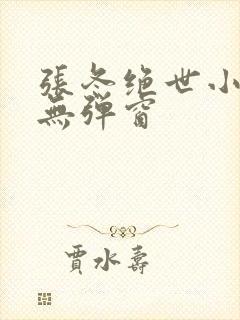 張冬绝世小
無彈窗
賈水壽